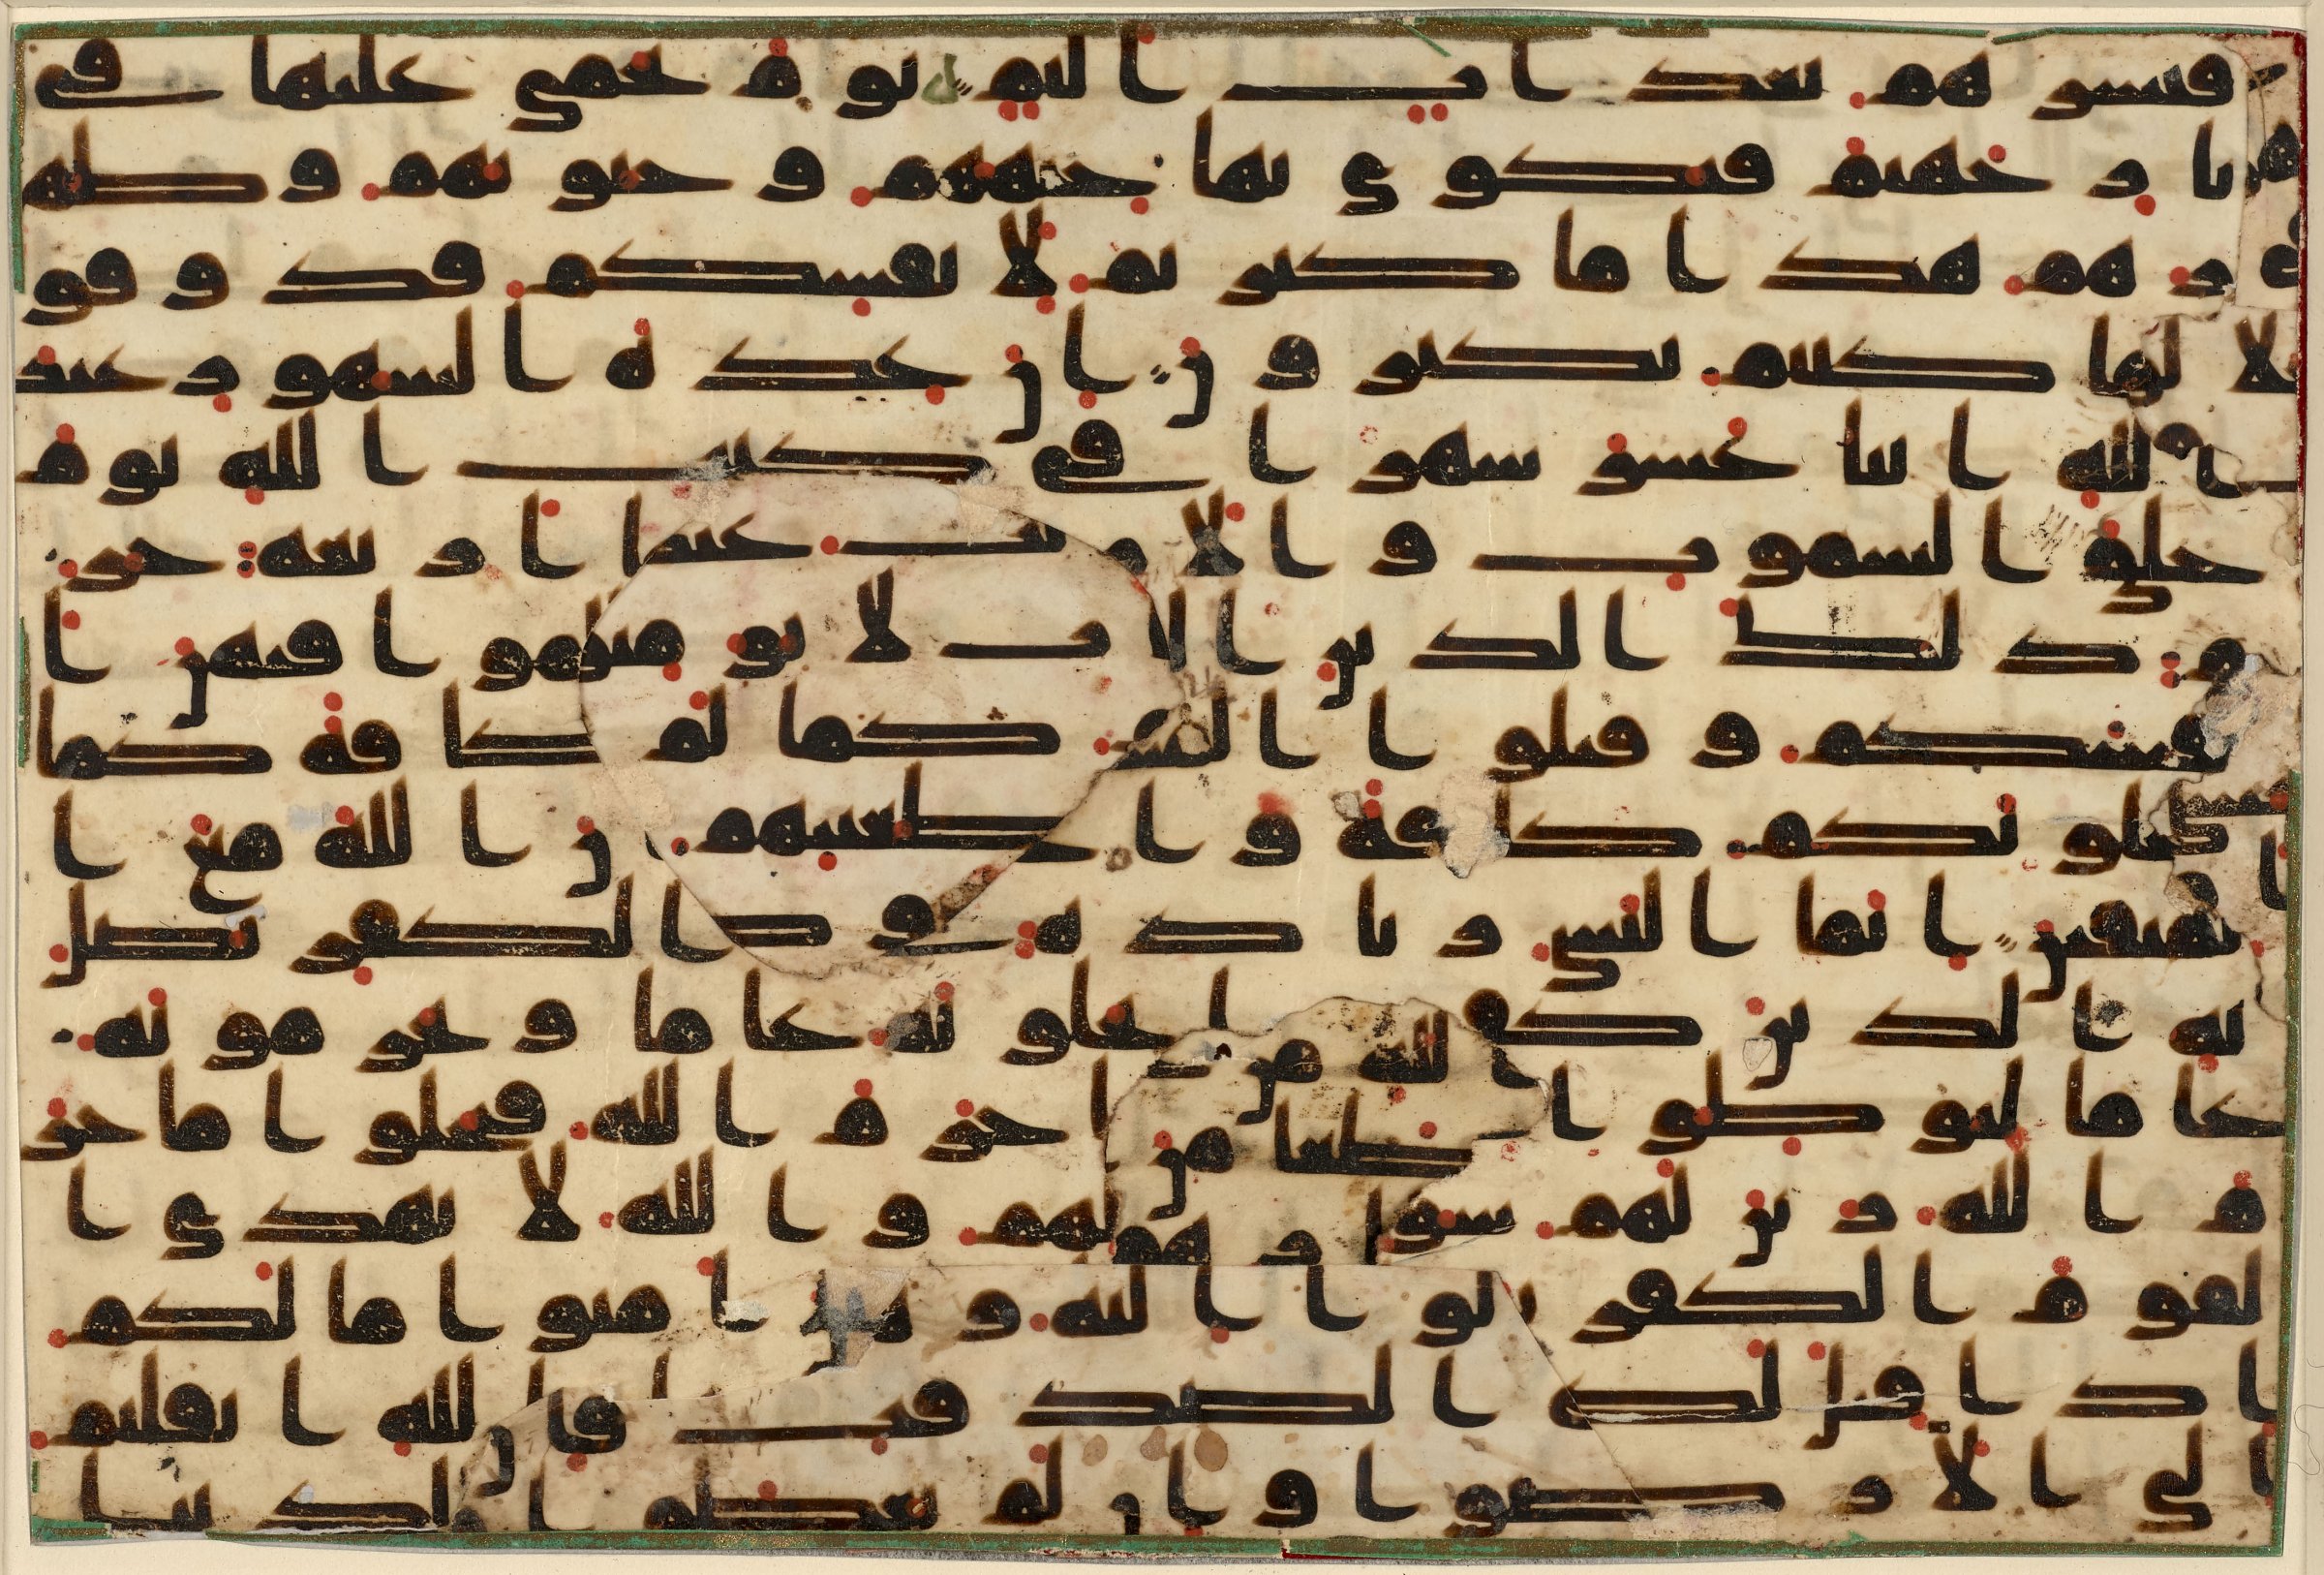 فبشرهم بعذاب اليم يوم يحمى عليها في
نار جهنم فتكوى بها جباههم وجنوبهم وظهو
رهم هذا ما كنزتم لانفسكم فذوقو
ا ما كنتم تكنزون ان عدة الشهور عند
الله اثنا عشر شهرا في كتب الله يوم
خلق السموت والارض منها اربعة حرم
ذلك الدين القيم فلا تظلموا فيهن ا
نفسكم وقتلوا المشركين كافة كما
يقتلونكم كافة واعلموا ان الله مع ا
لمتقين انما النسي زيادة في الكفر يضل
به الذين كفروا يحلونه عاما ويحرمونه
عاما ليواطوا عدة ما حرم الله فيحلوا ما حر
م الله زين لهم سو اعملهم والله لا يهدي ا
لقوم الكفرين يايها الذين امنوا ما لكم
اذا قيل لكم انفروا في سبيل الله اثاقلتم
الى الارض ارضيتم بالحيوة الدنيا